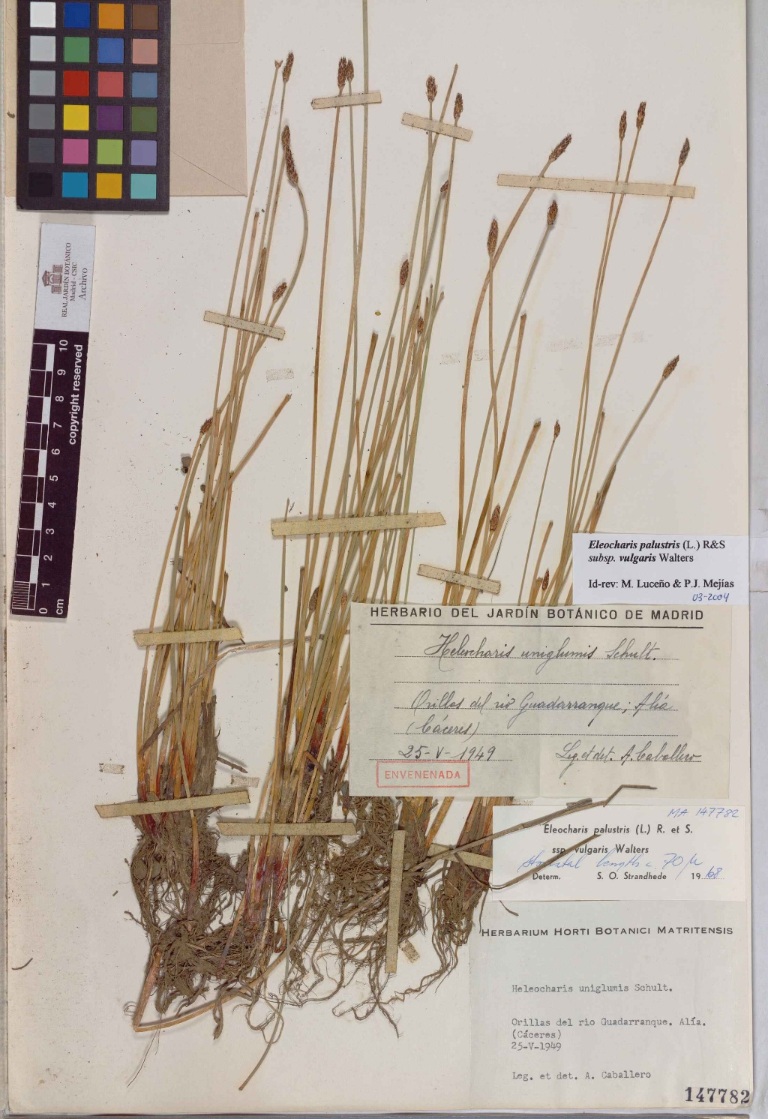 REAL JARDÍN BOTÁNICO
Madrid - CSIC
Archivo
copyright reserved
0 1 2 3 4 5 6 7 8 9 10
cm
Eleocharis palustris (L.) R&S
subsp. vulgaris Walters
Id-rev: M. Luceño & P.J. Mejías
03-2004
HERBARIO DEL JARDÍN BOTÁNICO DE MADRID
Heleocharis uniglumis Schult.
Orillas del rio Guadarranque; Alía
(Cáceres)
25-V-1949 Leg. et det. A. Caballero
ENVENENADA
MA 147782
Eleocharis palustris (L.) R. et S.
ssp. vulgaris Walters
length = 70 μ
Determ. S. O. Strandhede 1968
HERBARIUM HORTI BOTANICI MATRITENSIS
Heleocharis uniglumis Schult.
Orillas del rio Guadarranque. Alía.
(Cáceres)
25-V-1949
Leg. et det. A. Caballero
147782